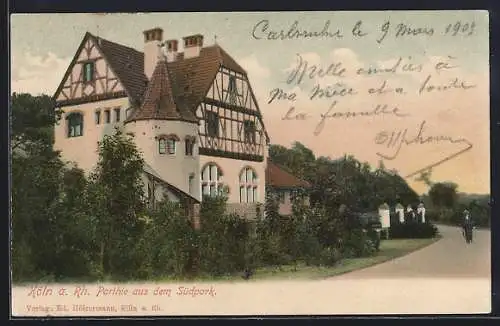 Carlsruhe le 9 Mars 1905
Mille amitiés à
ma Mère et a toute
la famille
Köln a. Rh. Parthie aus dem Südpark.
Verlag: Ed. Hölzermann, Köln a. Rh.